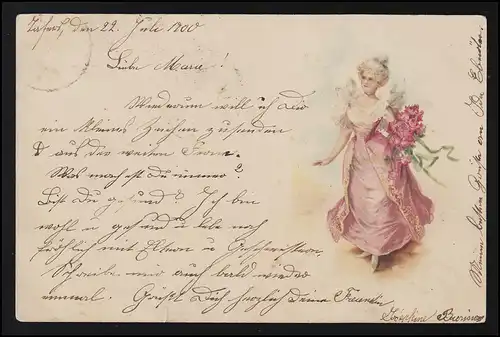 den 22. Juli 1900
Liebe Marie!
Wiederum will ich Dir
ein kleines Zeichen zusenden
aus der weiten Ferne.
Was machst Du immer?
Bist Du gesund? Ich bin
wohl u gesund u lebe noch
fröhlich mit Eltern u Geschwistern.
Schreibe mir auch bald wieder
einmal. Grüßt Dich herzlich Deine Freundin
Josephine
Meine besten Grüße an